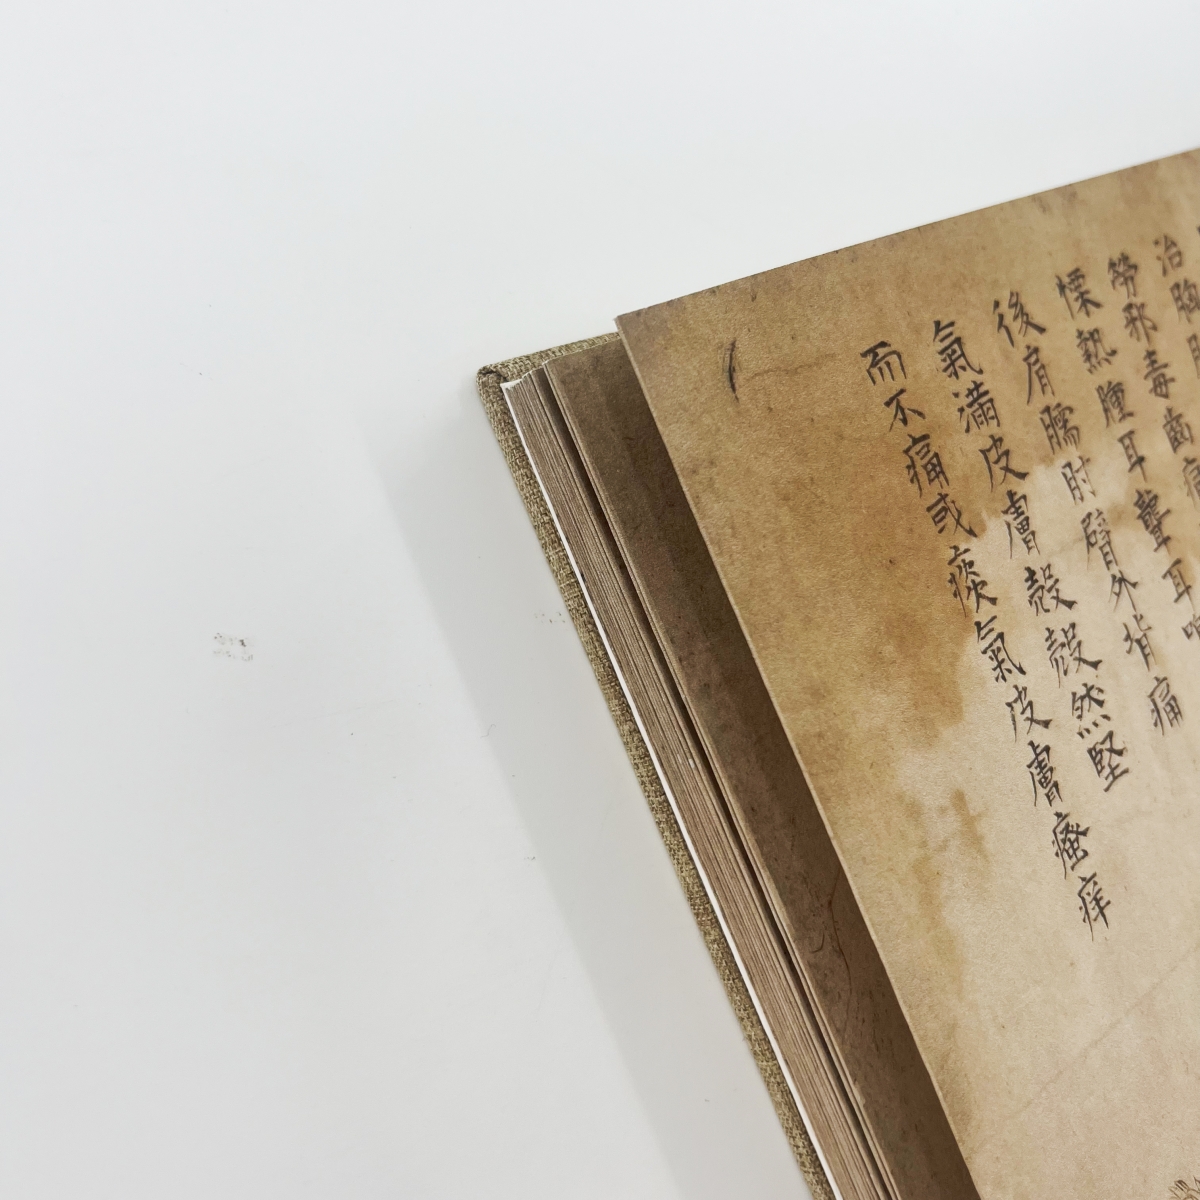 治胸
勞邪毒齒痛
慄熱腫耳聾耳鳴
後肩臑肘臂外背痛
氣滿皮膚殼殼然堅
而不痛或痰氣皮膚瘙痒